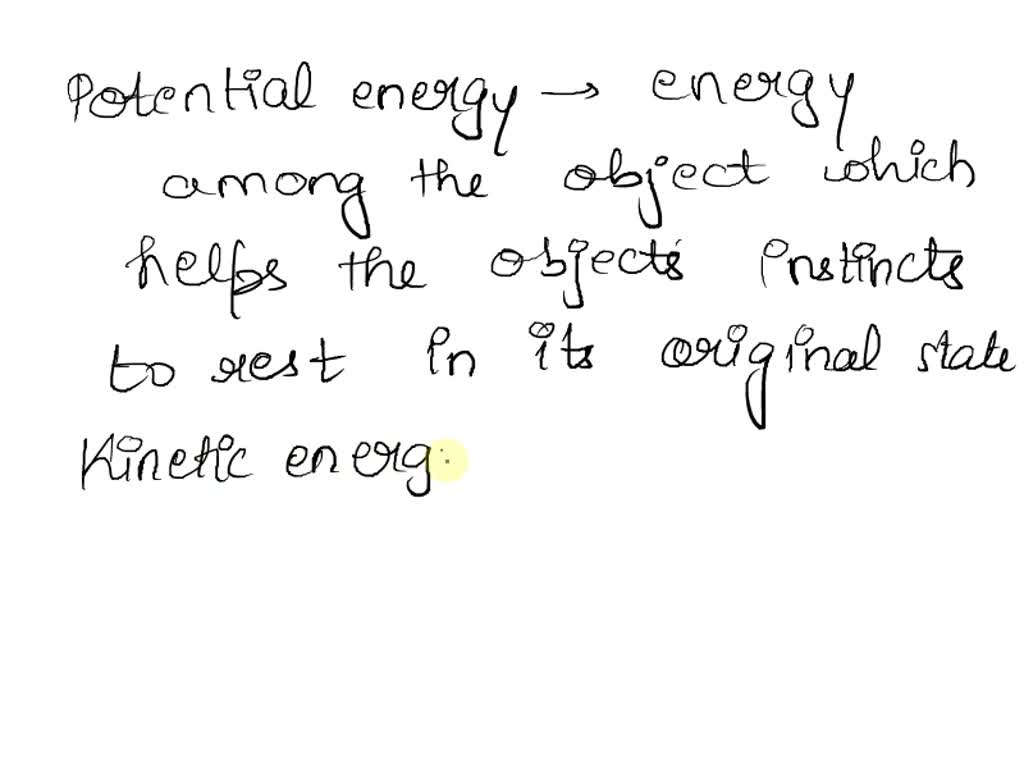 Potential energy → energy
among the object which
helps the objects instincts
to rest in its original state
Kinetic energ